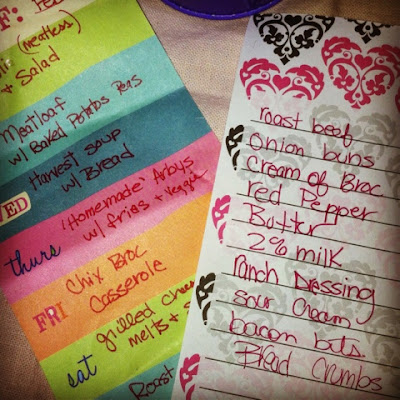 F:
(meatless)
+ Salad
Meatloaf
w/ Baked Potatos Peas
Harvest soup
w/ Bread
ED
'Homemade' Arbys
w/ fries + Veggie
thurs
Chix Broc
Casserole
FRI
grilled chee
melts + s
sat
Roast
roast beef
onion buns
Cream of Broc
red Pepper
Butter
2% milk
Ranch Dressing
sour Cream
bacon bits
Bread Crumbs